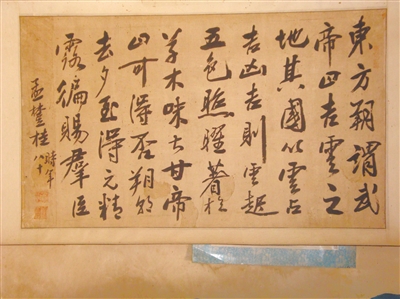 東方朔謂武
帝曰吉雲之
地其國以雲占
吉凶吉則雲起
五色照曜著於
草木味甘帝
曰可得否朔
去夕至得元精
露徧賜羣臣
孟桂
時年
八十